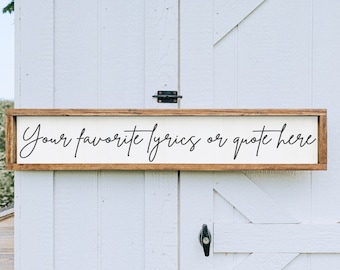 Your favorite lyrics or quote here